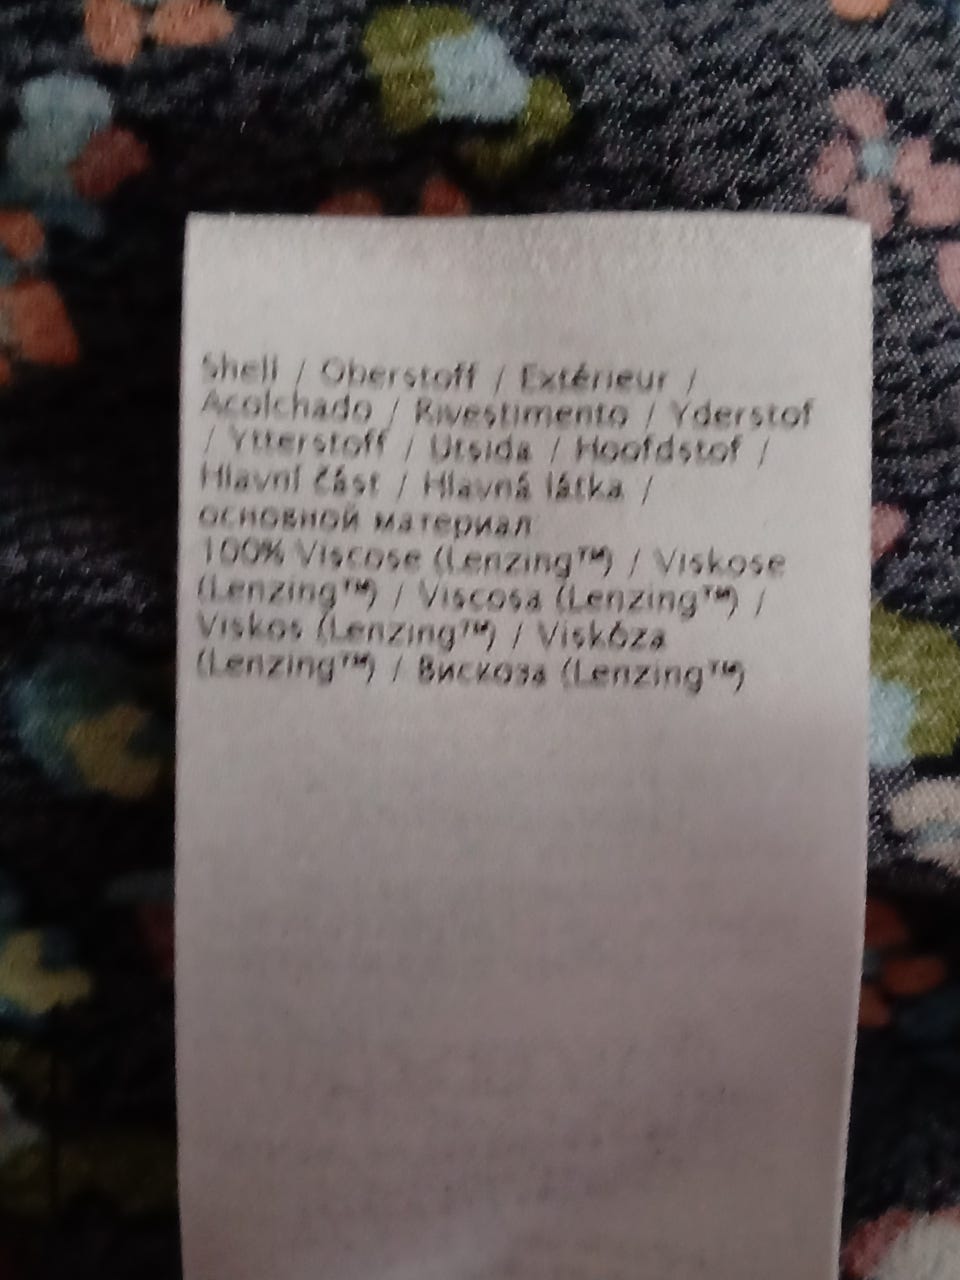 Shell / Oberstoff / Extérieur /
Acolchado / Rivestimento / Yderstof
/ Ytterstoff / Utsida / Hoofdstof /
Hlavní část / Hlavná látka /
основной материал:
100% Viscose (Lenzing™) / Viskose
(Lenzing™) / Viscosa (Lenzing™) /
Viskos (Lenzing™) / Viskóza
(Lenzing™) / Вискоза (Lenzing™)